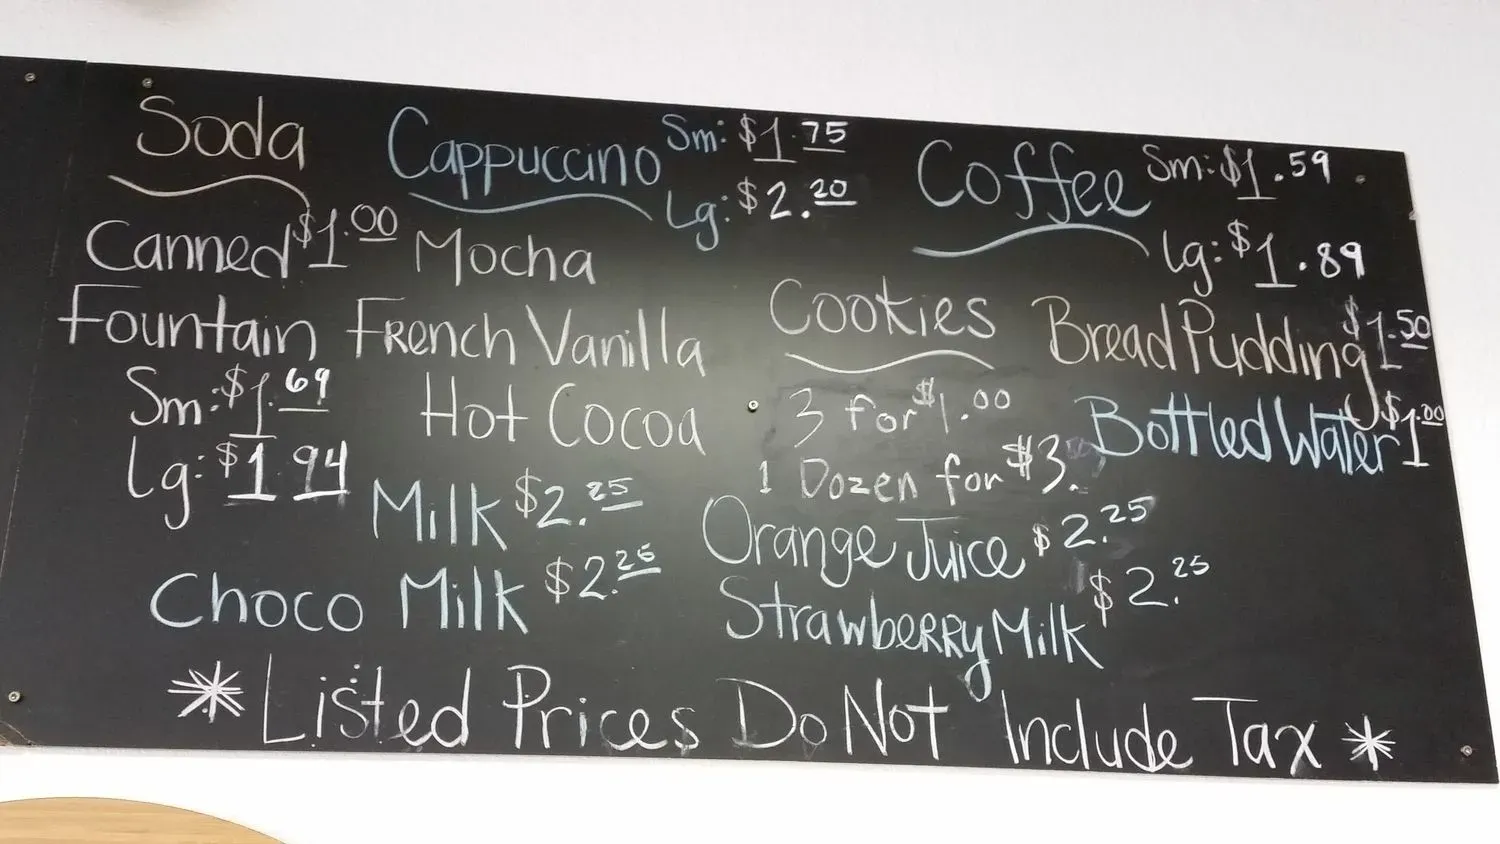 Soda
Canned $1.00
Fountain
Sm: $1.69
Lg: $1.94
Cappuccino Sm: $1.75
Lg: $2.20
Mocha
French Vanilla
Hot Cocoa
Milk $2.25
Choco Milk $2.25
Coffee Sm: $1.59
Lg: $1.89
Cookies
3 for $1.00
1 Dozen for $3.
Bread Pudding $1.50
Bottled Water $1.00
Orange Juice $2.25
Strawberry Milk $2.25
* Listed Prices Do Not Include Tax *